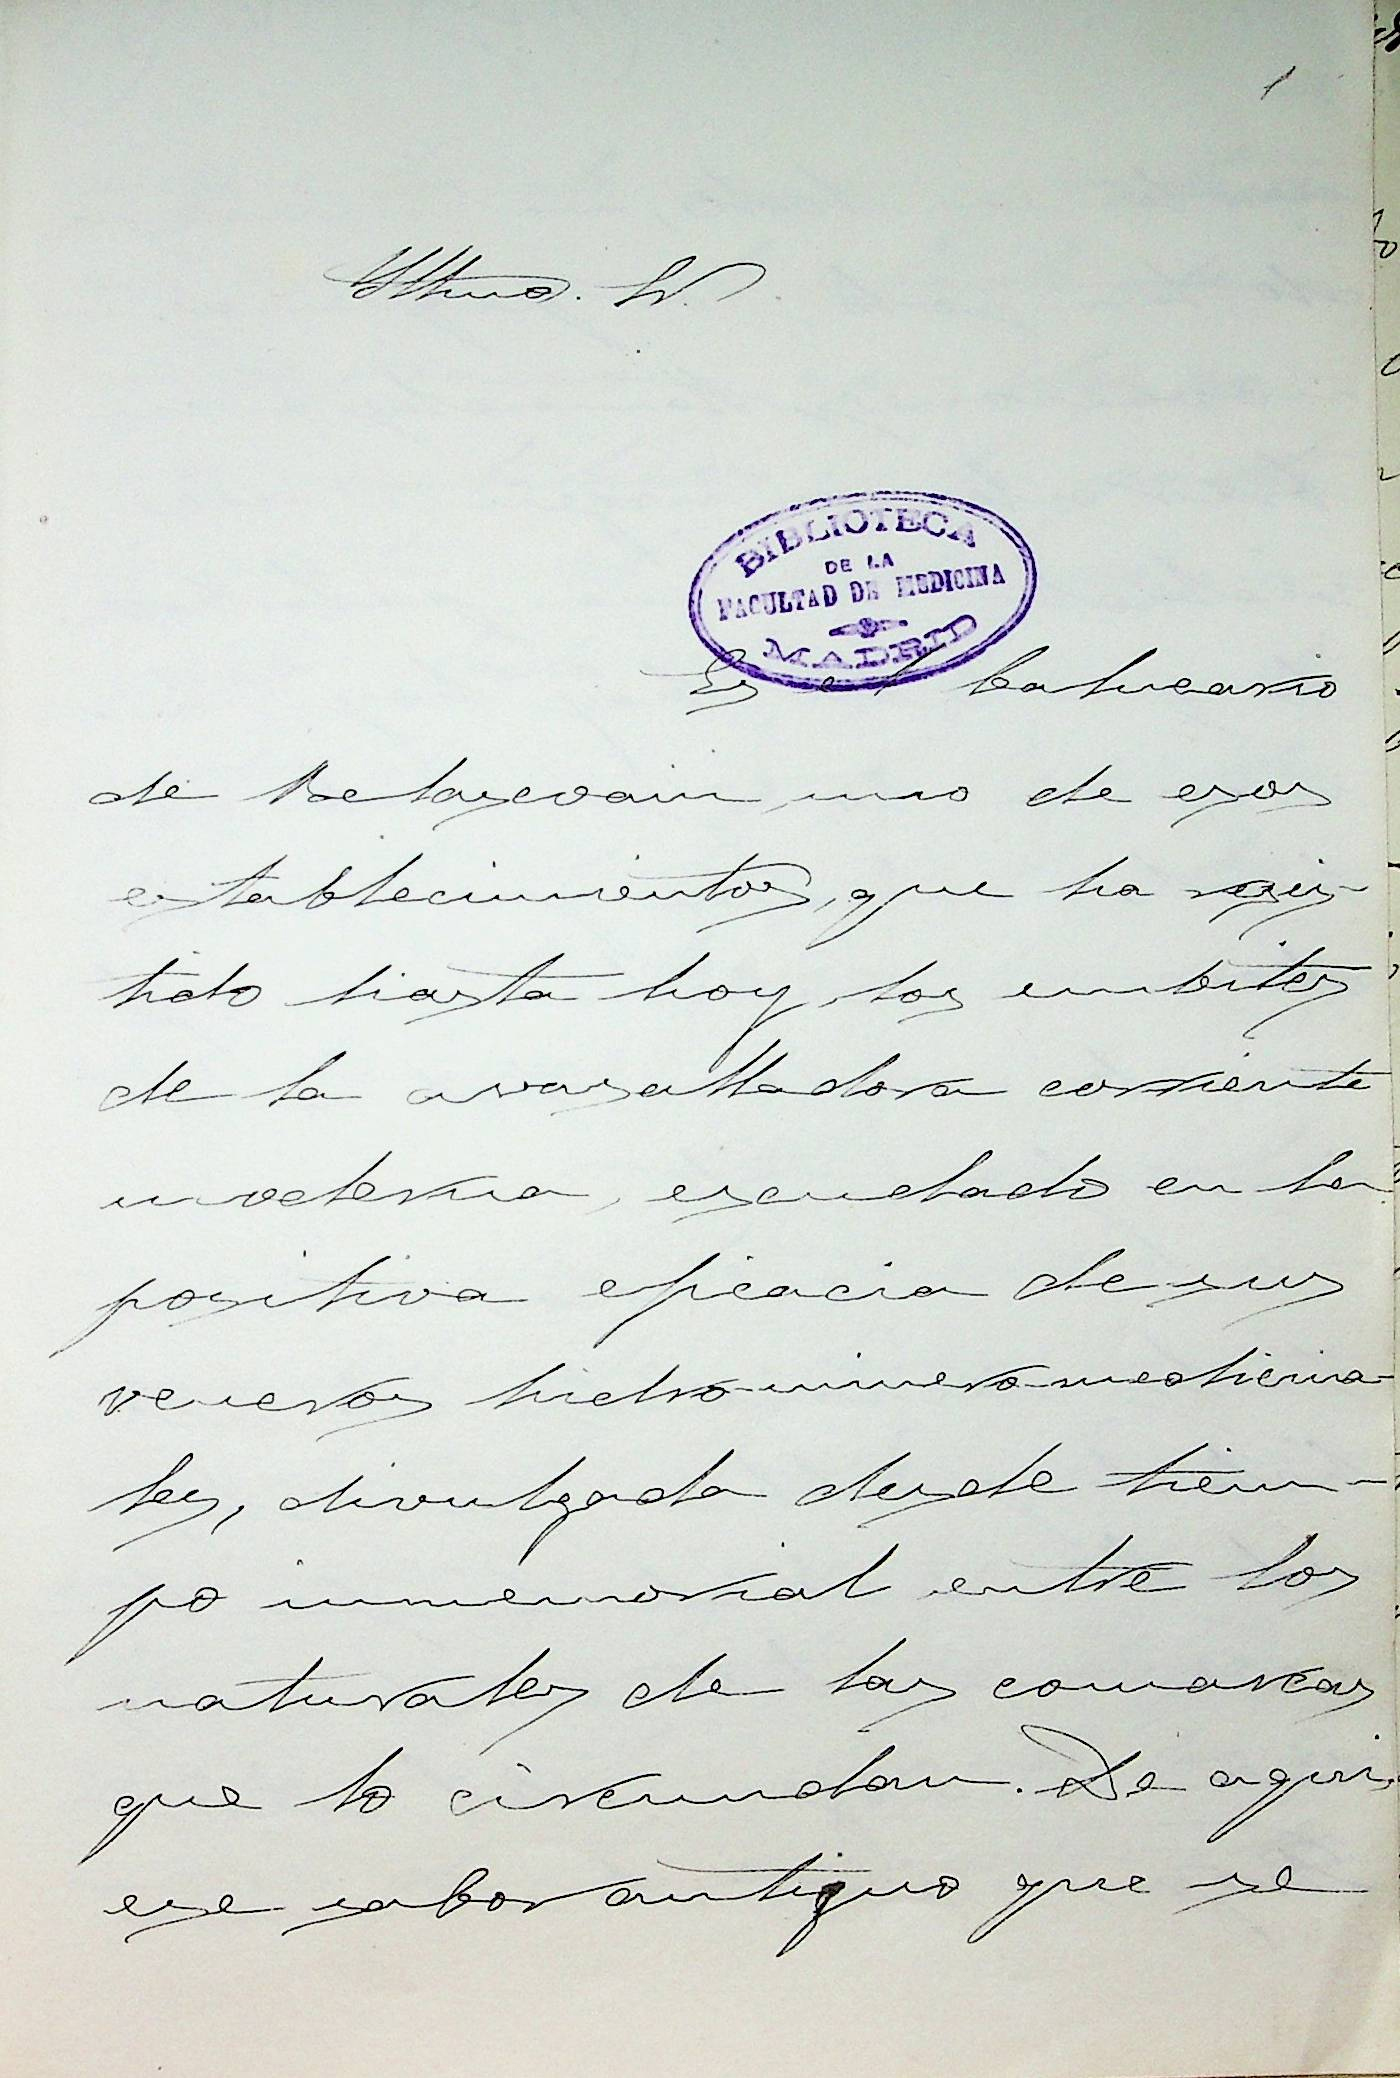 1
Yltmo. Sr.
BIBLIOTECA
DE LA
FACULTAD DE MEDICINA
MADRID
Es el balneario
de Belascoain, uno de esos
establecimientos, que ha resis-
tido hasta hoy, los embites
de la avasalladora corriente
moderna, escudado en la
positiva eficacia de sus
veneros hidro-minero-medicina-
les, divulgada desde tiem-
po inmemorial entre los
naturales de las comarcas
que lo circundan. De aqui,
ese sabor antiguo que se